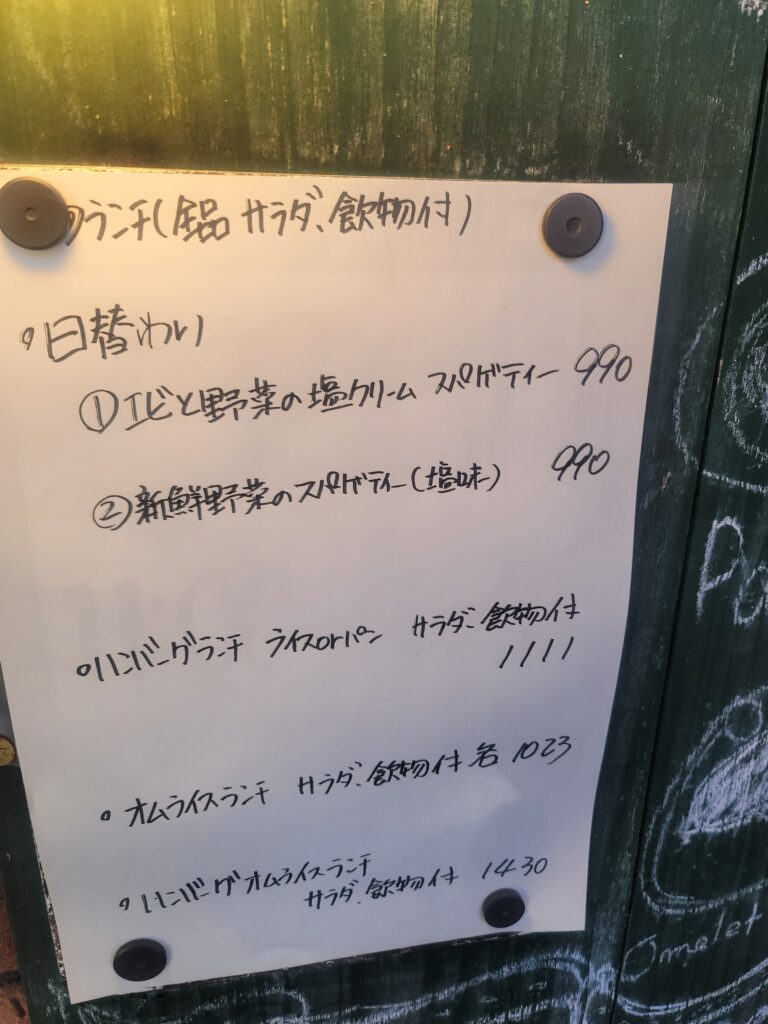 ランチ(全品 サラダ、飲物付)
日替わり
①エビと野菜の塩クリーム スパゲティー 990
②新鮮野菜のスパゲティー(塩味) 990
ハンバーグランチ ライスorパン サラダ、飲物付
1111
オムライスランチ サラダ、飲物付 各 1023
ハンバーグオムライスランチ
サラダ、飲物付 1430
Omelet